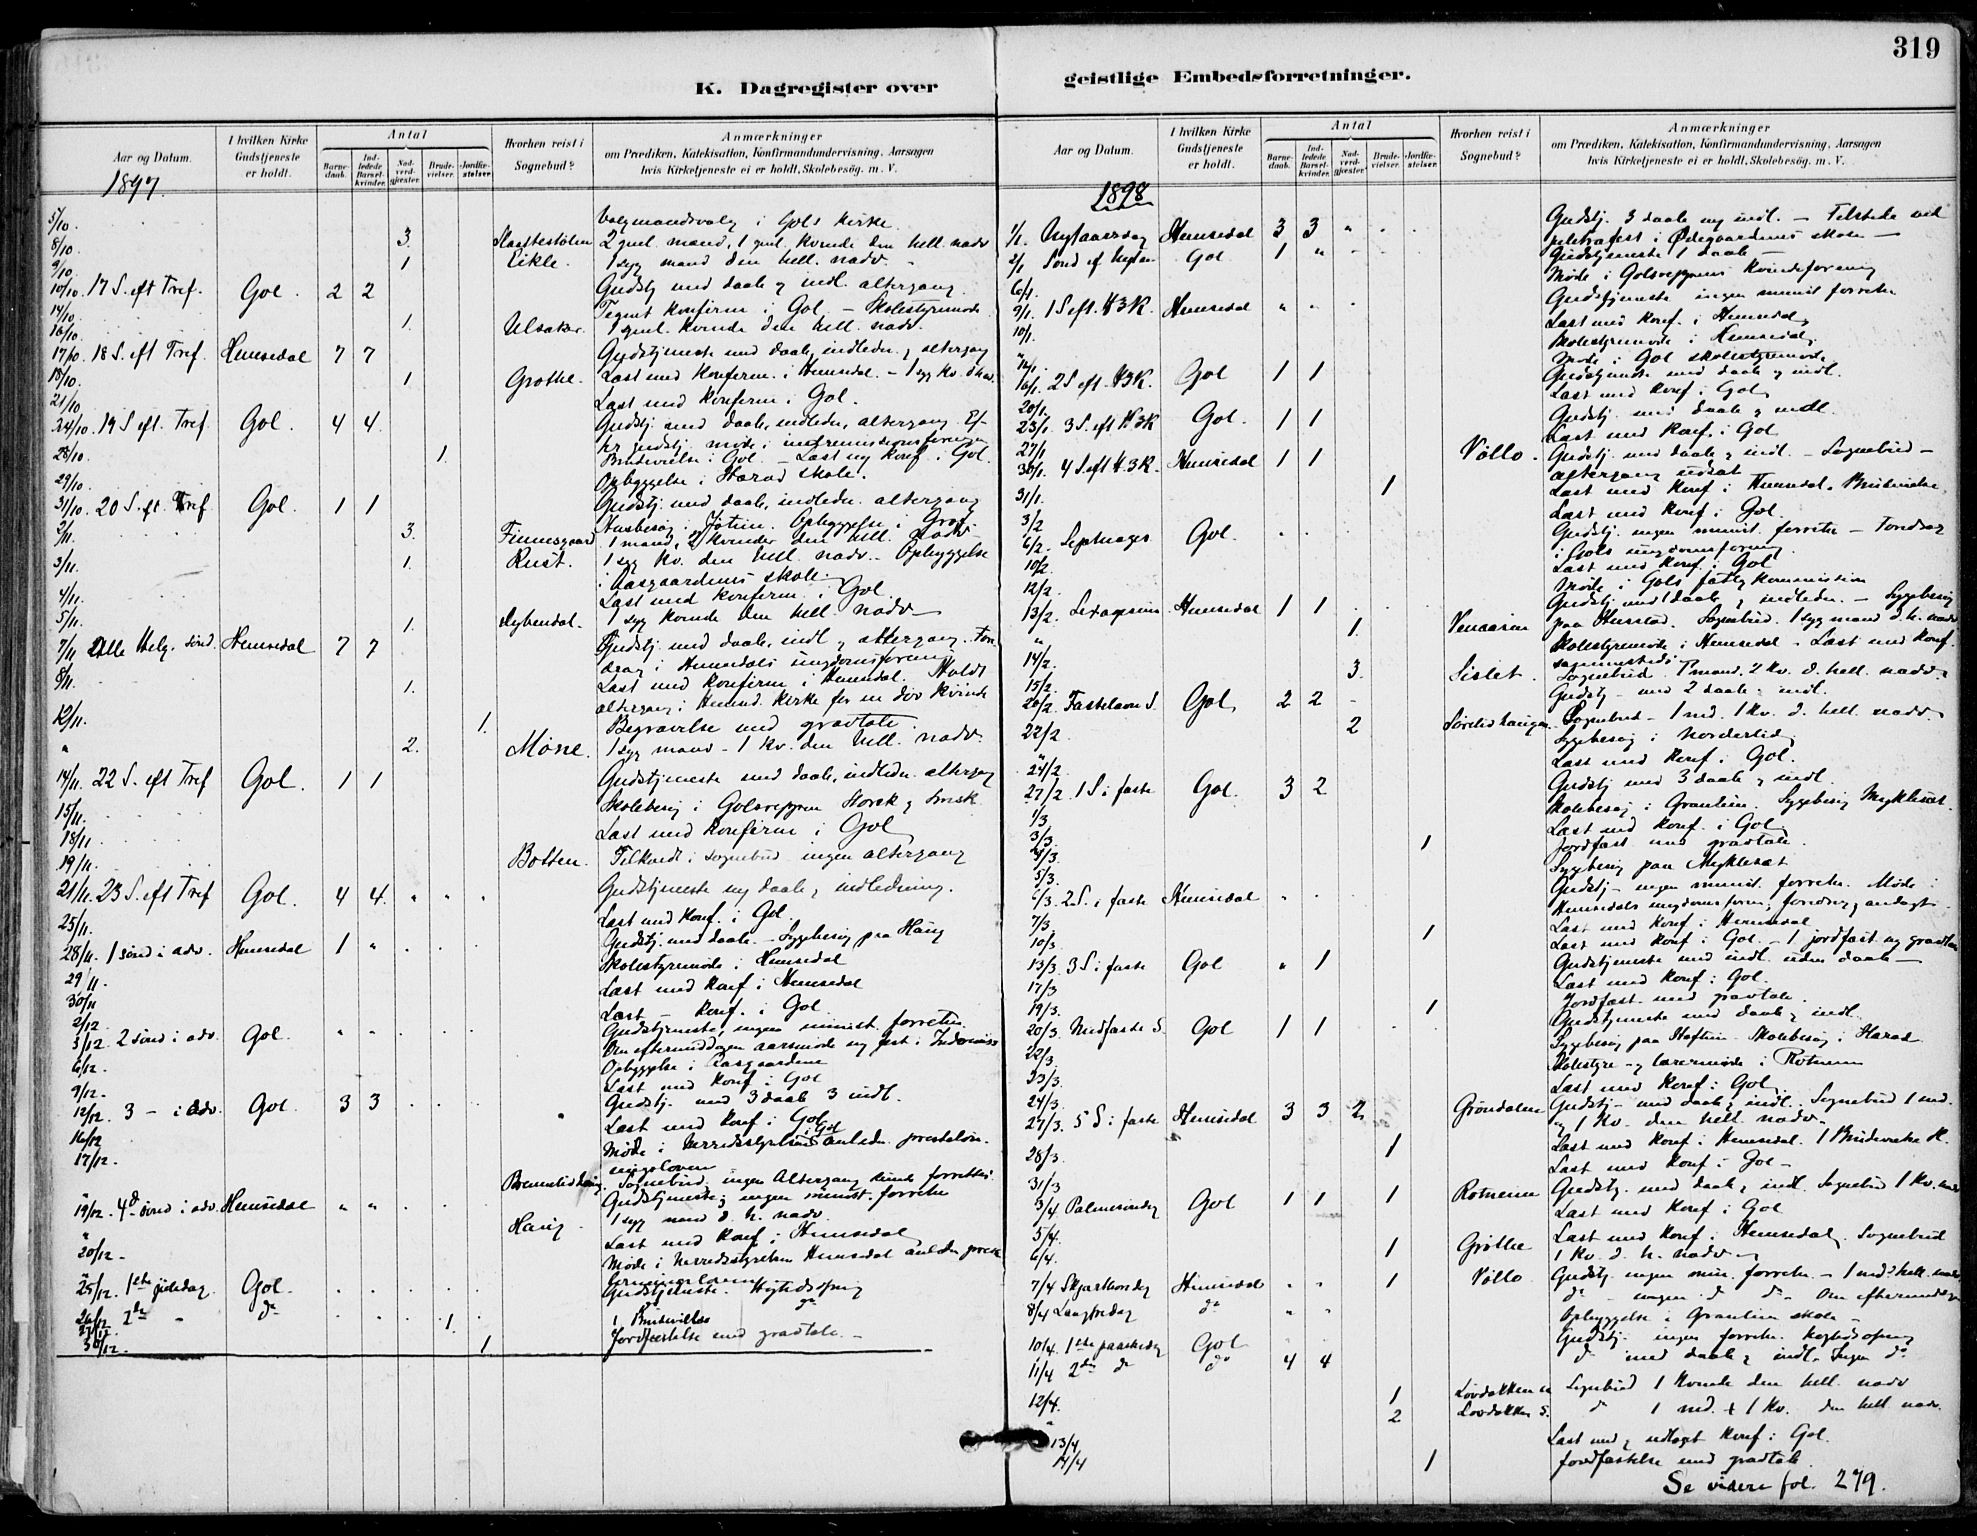 319
K. Dagregister over geistlige Embedsforretninger.
Aar og Datum. I hvilken Kirke Gudstjeneste er holdt. Antal Barnedaab. Indledede Barselkvinder. Nadverdgjæster. Brudevielser. Jordfæstelser. Hvorhen reist i Sognebud? Anmærkninger om Prædiken, Katekisation, Konfirmandundervisning, Aarsagen hvis Kirketjeneste ei er holdt, Skolebesøg. m. V.
1897.
5/10. Valgmandsvalg i Gols kirke.
8/10. 3. 2 gml. mand, 1 gml. kvinde den hell. nadv
9/10 1 Eikle. 1 syg mand den hell. nadv.
10/10. 17 S. eft Tref. Gol. 2 2 Gudstj med daab og indl. altergang
14/10. Tegnet konfirm i Gol - Skolestyremøde
16/10. 1. Ulsaker. 1 gml. kvinde den hell. nadv.
17/10. 18 S. eft Tref. Hemsedal 7 7 Gudstjeneste med daab, indleden. og altergang
18/10. 1 Grøthe. Læst med konfirm. i Hemsedal. - 1 syg kv. d. h. n.
21/10 Læst med konfirm i Gol.
24/10. 19 S. eft. Tref. Gol. 4 4. Gudstj. med daab, indleden, altergang. Ef-
ter gudstj. møde i indremissionsforening
28/10. 1. Brudevielse i Gol - Læst og konf. i Gol.
29/10. Opbyggelse i Harad skole.
31/10. 20 S. eft. Tref Gol. 1 1 Gudstj. med daab, indleden. altergang
2/11. 3. Finnesgaard 1 mand, 2 kvinder den hell. nadv
3/11. 1. Rust. 1 syg kv. den hell. nadv. Opbyggelse
i Aasgaardens skole.
4/11. Læst med konfirm. i Gol.
5/11. 1. 1 syg kvinde den hell. nadv
7/11 Alle Helg. sønd. Hemsedal 7 7 Gudstj med daab, indl. og altergang. Fore-
drag i Hemsedals ungdomsforening
8/11. 1. Læst med konfirm i Hemsedal. Holdt
altergang i Hemsd. kirke for en døv kvinde
12/11. 1. Begravelse med gravtale.
" 2. Møne. 1 syg mand - 1 kv. den hell. nadv.
14/11. 22 S. eft Tref Gol. 1 1 Gudstjeneste med daab, indleden. altergang
15/11. Skolebesøg i Golsreppen
18/11 Læst med konfirm i Gol
19/11. Botten. Tilkaldt i sognebud. ingen altergang
21/11. 23 S. eft Tref Gol. 4 4. Gudstjeneste og daab og indledning.
25/11. Læst med konf. i Gol.
28/11. 1 sønd i adv. Hemsedal 1 " Gudstj. med daab. - Sygebesøg paa Haug
29/11. Skolestyremøde i Hemsedal
30/11 Læst med konf. i Hemsedal
2/12. Læst - konf. i Gol
5/12. 2 sønd i adv. Gol. " " Gudstjeneste, ingen minist. forretn.
Om eftermiddagen aarsmøde og fest i Indremiss
6/12. Opbyggelse i Aasgaarden
9/12. Læst med konf. i Gol
12/12. 3 - i adv. Gol. 3 3 Gudstj. med 3 daab 3 indl.
16/12 Læst med konf i Gol
17/12. Møde i herredsstyrelsen i Gol anleden. presteløn-
ningsloven
" Sognebud, ingen Altergang kunde forrettes
19/12. 4de sønd i adv. Hemsedal " " Gudstjeneste, ingen minist. forretn
" Haug. 1 syg mand d. h. nadv.
20/12 - Læst med konf i Hemsedal
" Møde i herredsstyrelsen Hemsedal anleden preste
lønningsloven
25/12. 1ste juledag Gol. Gudstjeneste. Høitidsoffring
26/12 2de " do 1. 1 Brudevielse
30/12. 1 Jordfæstelse med gravtale. -
Aar og Datum. I hvilken Kirke Gudstjeneste er holdt. Antal Barnedaab. Indledede Barselkvinder. Nadverdgjæster. Brudevielser. Jordfæstelser. Hvorhen reist i Sognebud? Anmærkninger om Prædiken, Katekisation, Konfirmandundervisning, Aarsagen hvis Kirketjeneste ei er holdt, Skolebesøg. m. V.
1898
1/1. Nytaarsdag Hemsedal 3 3 " Gudstj. 3 daab og indl. - Tilstede ved
juletræfest i Ødegaardens skole -
2/1 Sønd ef. Nytaar Gol 1 " Gudstjeneste 1 daab -
6/1. Møde i Golsreppens kvindeforening
9/1. 1 S eft. H3K. Hemsedal " Gudstjeneste ingen minist forretn
10/1. Læst med konf. i Hemsedal
" Skolestyremøde i Hemsedal
14/1. Møde i Gol skolestyremøde
16/1. 2 S. eft. H3K. Gol 1 1 Gudstjeneste med daab og indl.
20/1. Læst med konf. i Gol
23/1. 3 S. eft H3K Gol. 1 1 Gudstj. med daab og indl.
27/1 Læst med konf. i Gol
30/1. 4 S. eft H.3K. Hemsedal 1 1 Vøllo. Gudstj. med daab og indl. - Sognebud -
altergang udsat
31/1. 1 Læst med konf i Hemsedal. Brudevielse
3/2 Læst med konf i Gol.
6/2. Septuages Gol. Gudstj. ingen minist. forretn - Foredrag
i Gols ungdomsforening.
10/2. Læst med konf. i Gol
12/2. Møde i Gols fattigkommission
13/2. Sexagesima Hemsedal 1 1 Gudstj med daab og indleden. - Sygebesøg
" 1. Sognebud. 1 syg mand d. h. nadv
14/2. Skolestyremøde i Hemsedal - Læst med konf.
sammesteds.
15/2. 3. Sislet. Sognebud 1 mand, 2 kv. d. hell. nadv.
20/2. Fastelavn S. Gol 2 2 Gudstj - med 2 daab og indl.
22/2. 2 Sognebud - 1 md. 1 kv. d. hell. nadv.
" Sygebesøg i Norderlid
24/2. Læst med konf. i Gol.
27/2. 1 S i faste Gol. 3 2 Gudstj med 3 daab og indl.
1/3 Skolebesøg i Granlien. Sygebesøg Myklesæt.
3/3. Læst med konf. i Gol
4/3. 1 Jordfæst med gravtale.
5/3. Sygebesøg paa Myklesæt
6/3. 2 S. i faste Hemsedal Gudstj - ingen minist. forretn. Møde i
Hemsedals ungdomsforen, foredrag og andagt
7/3. Læst med konf i Hemsedal
10/3. 1 Læst med konf i Gol - 1 jordfæst og gravtale
13/3. 3 S i faste Gol " 1 Gudstjeneste med indl. uden daab -
17/3 Læst med konf i Gol.
19/3. 1 Jordfæst med gravtale.
20/3. Midfaste S. Gol 1 1 Gudstjeneste med daab og indl.
22/3. Skolebesøg i Harad
23/3. Skolestyre - og lærermøde i Rotneim
24/3. Læst med konf i Gol
27/3. 5 S i faste Hemsedal 3 3 2 Grøndalen Gudstj - med daab og indl. Sognebud 1 md.
og 1 kv. den hell. nadv.
28/3. 1 Læst med konf. i Hemsedal. 1 Brudevielse H.
31/3 Læst med konf i Gol -
3/4 Palmesøndag Gol 1 1 1 Rotneim Gudstj. med daab og indl. Sognebud 1 kv. nadv
5/4. Læst med konf i Gol
6/4. 1 Grøthe Læst med konf. i Hemsedal. Sognebud
1 kv. d. h. nadv -
7/4 Skjærtorsdag Hemsedal " " 1 Vøllo Gudstj. ingen min. forretn. - 1 md? hell. nadv
8/4 Langfredag do " " do - ingen do do - Om eftermiddagen
Opbyggelse i Granlien skole -
10/4. 1ste paaskedag Gol Gudstj - ingen forretn. høitidsoffring
11/4 2den do do 4 4 do med daab og indl. Ingen do
12/4. 1 Løvdokken Sognebud 1 kvinde den hell. nadv
" 2 Løvdokken S. do 1 md. + 1 kv. den hell nadv.
13/4 Læst med og udlagt konf i Gol.
14/4 1 Jordfæstelse med gravtale.
Se videre fol. 279.